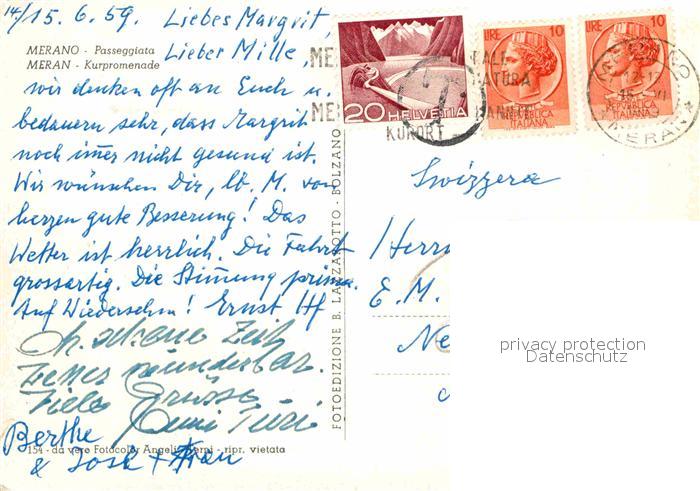 14/15. 6. 59. Liebes Margrit,
MERANO - Passeggiata
MERAN - Kurpromenade
Lieber Mille,
wir denken oft an Euch u.
bedauern sehr, dass Margrit
noch immer nicht gesund ist.
Wir wünschen Dir, lb. M. von
herzen gute Besserung! Das
Wetter ist herrlich. Die Fahrt
grossartig. Die Stimmung prima.
Auf Wiedersehn! Ernst Hf
schöne Zeit
Wetter wunderbar.
Viele Grüsse
Berthe
& José + Frau
154 - da vero Fotocolor Angeli - Terni - ripr. vietata
FOTOEDIZIONE B. LANZAROTTO - BOLZANO
20 HELVETIA
KURORT
LIRE 10
REPVBBLICA
ITALIANA
LIRE 10
REPVBBLICA
ITALIANA
MERANO
Svizzera
Herrn
E. M.
Ne
privacy protection
Datenschutz